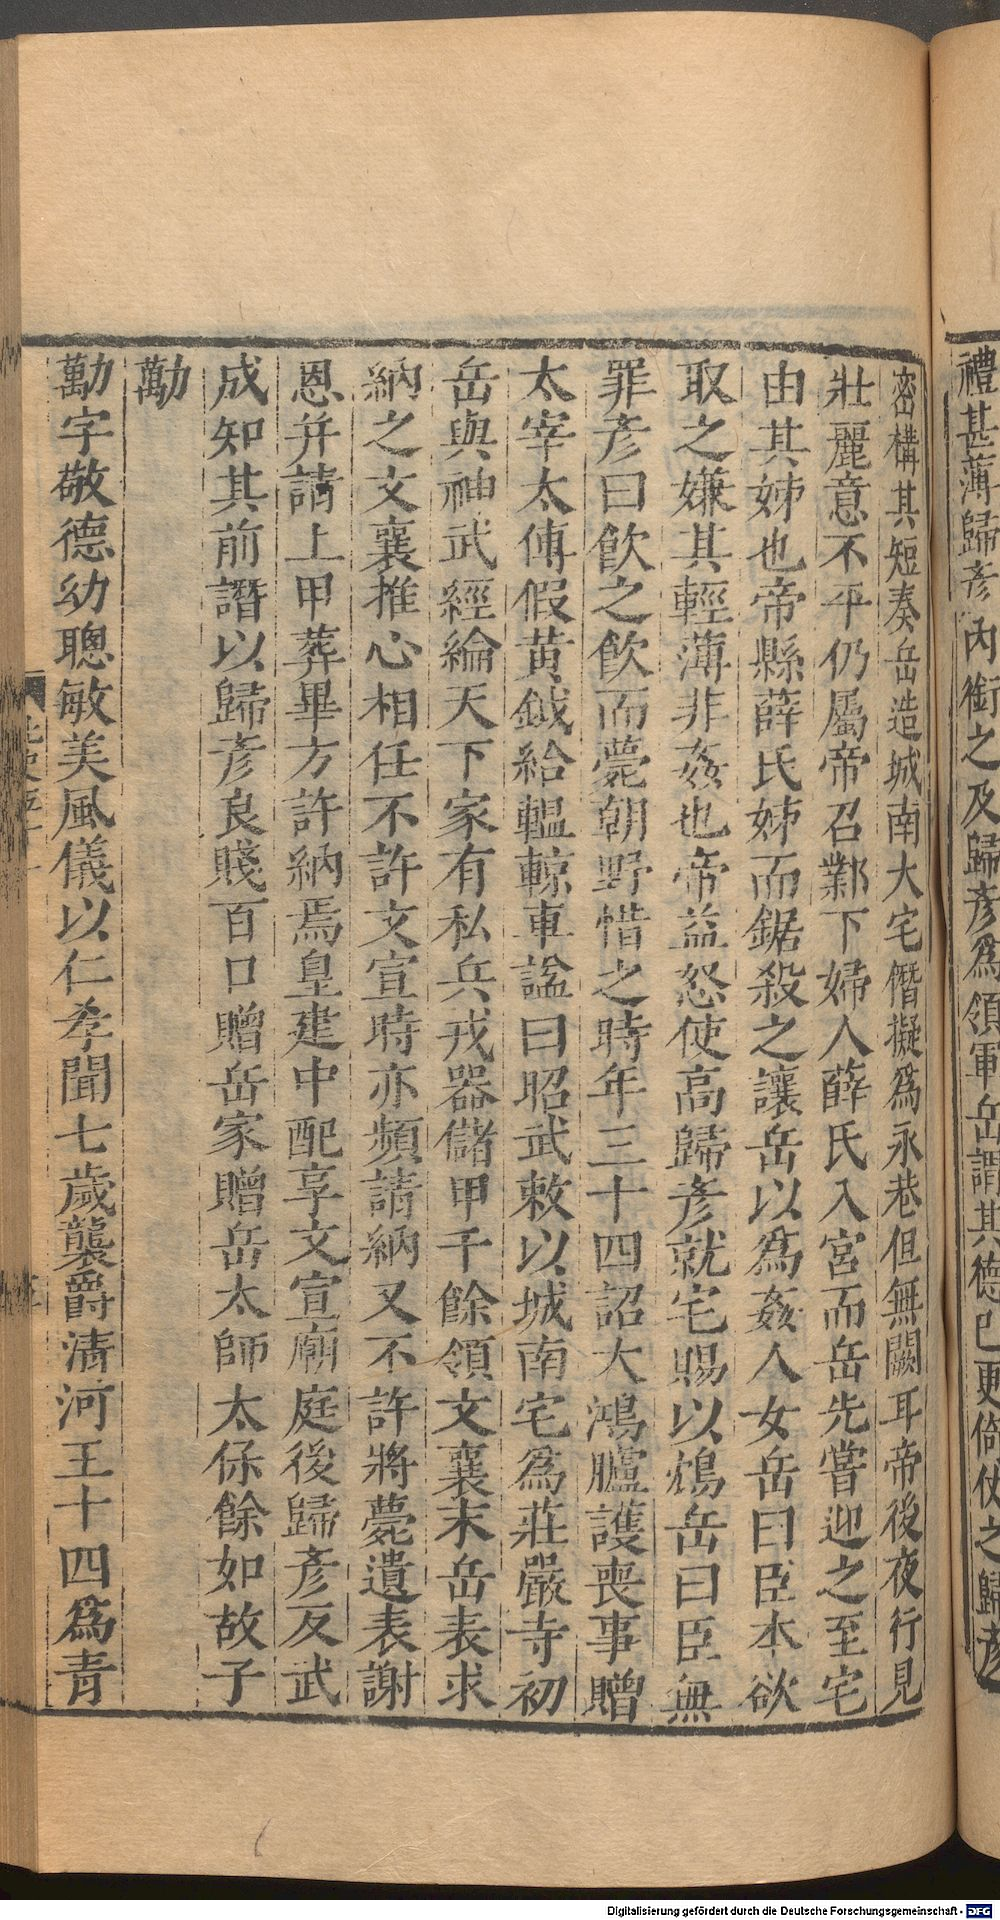 禮甚薄歸彥內銜之及歸彥爲領軍岳謂其德已更倚仗之歸彥
密構其短奏岳造城南大宅僭擬爲永巷但無闕耳帝後夜行見
壯麗意不平仍屬帝召鄴下婦人薛氏入宮而岳先嘗迎之至宅
由其姊也帝縣薛氏姊而鋸殺之讓岳以爲姦人女岳曰臣本欲
取之嫌其輕薄非姦也帝益怒使高歸彥就宅賜以鴆岳曰臣無
罪彥曰飮之飮而薨朝野惜之時年三十四詔大鴻臚護喪事贈
太宰太傅假黄鉞給轀輬車諡曰昭武敕以城南宅爲莊嚴寺初
岳與神武經綸天下家有私兵戎器儲甲千餘領文襄末岳表求
納之文襄推心相任不許文宣時亦頻請納又不許將薨遺表謝
恩并請上甲葬畢方許納焉皇建中配享文宣廟庭後歸彥反武
成知其前譖以歸彥良賤百口贈岳家贈岳太師太保餘如故子
勱
勱字敬德幼聰敏美風儀以仁孝聞七歲襲爵清河王十四爲青
Digitalisierung gefördert durch die Deutsche Forschungsgemeinschaft - DFG